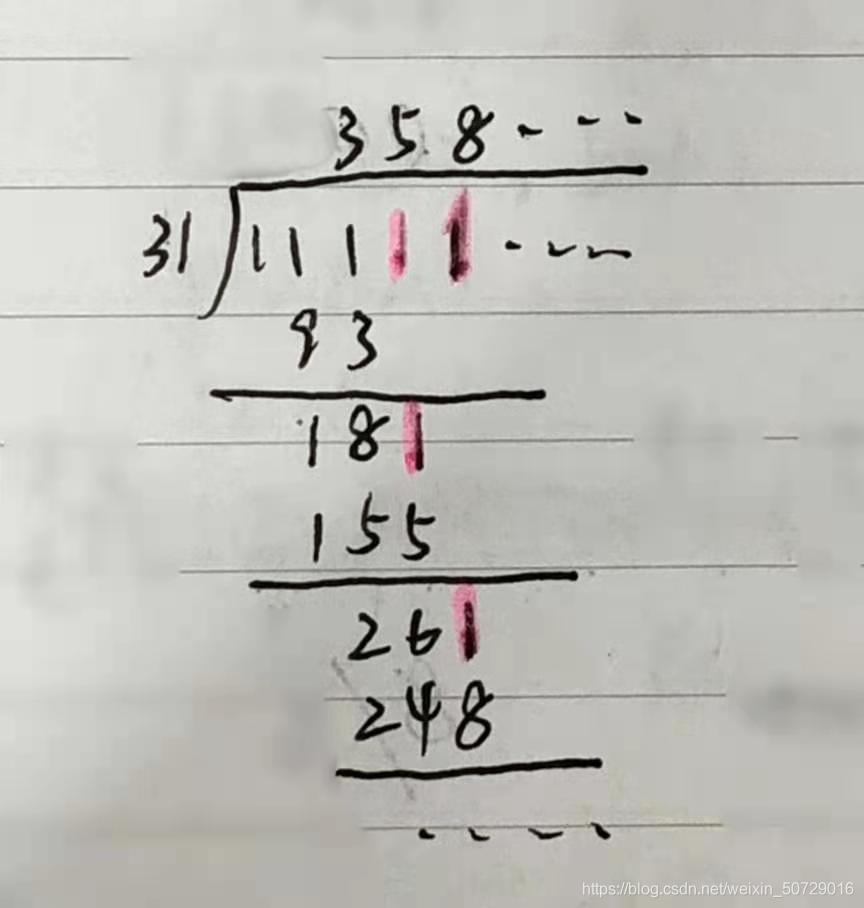 358....
31 11111....
93
181
155
261
248
....
https://blog.csdn.net/weixin_50729016